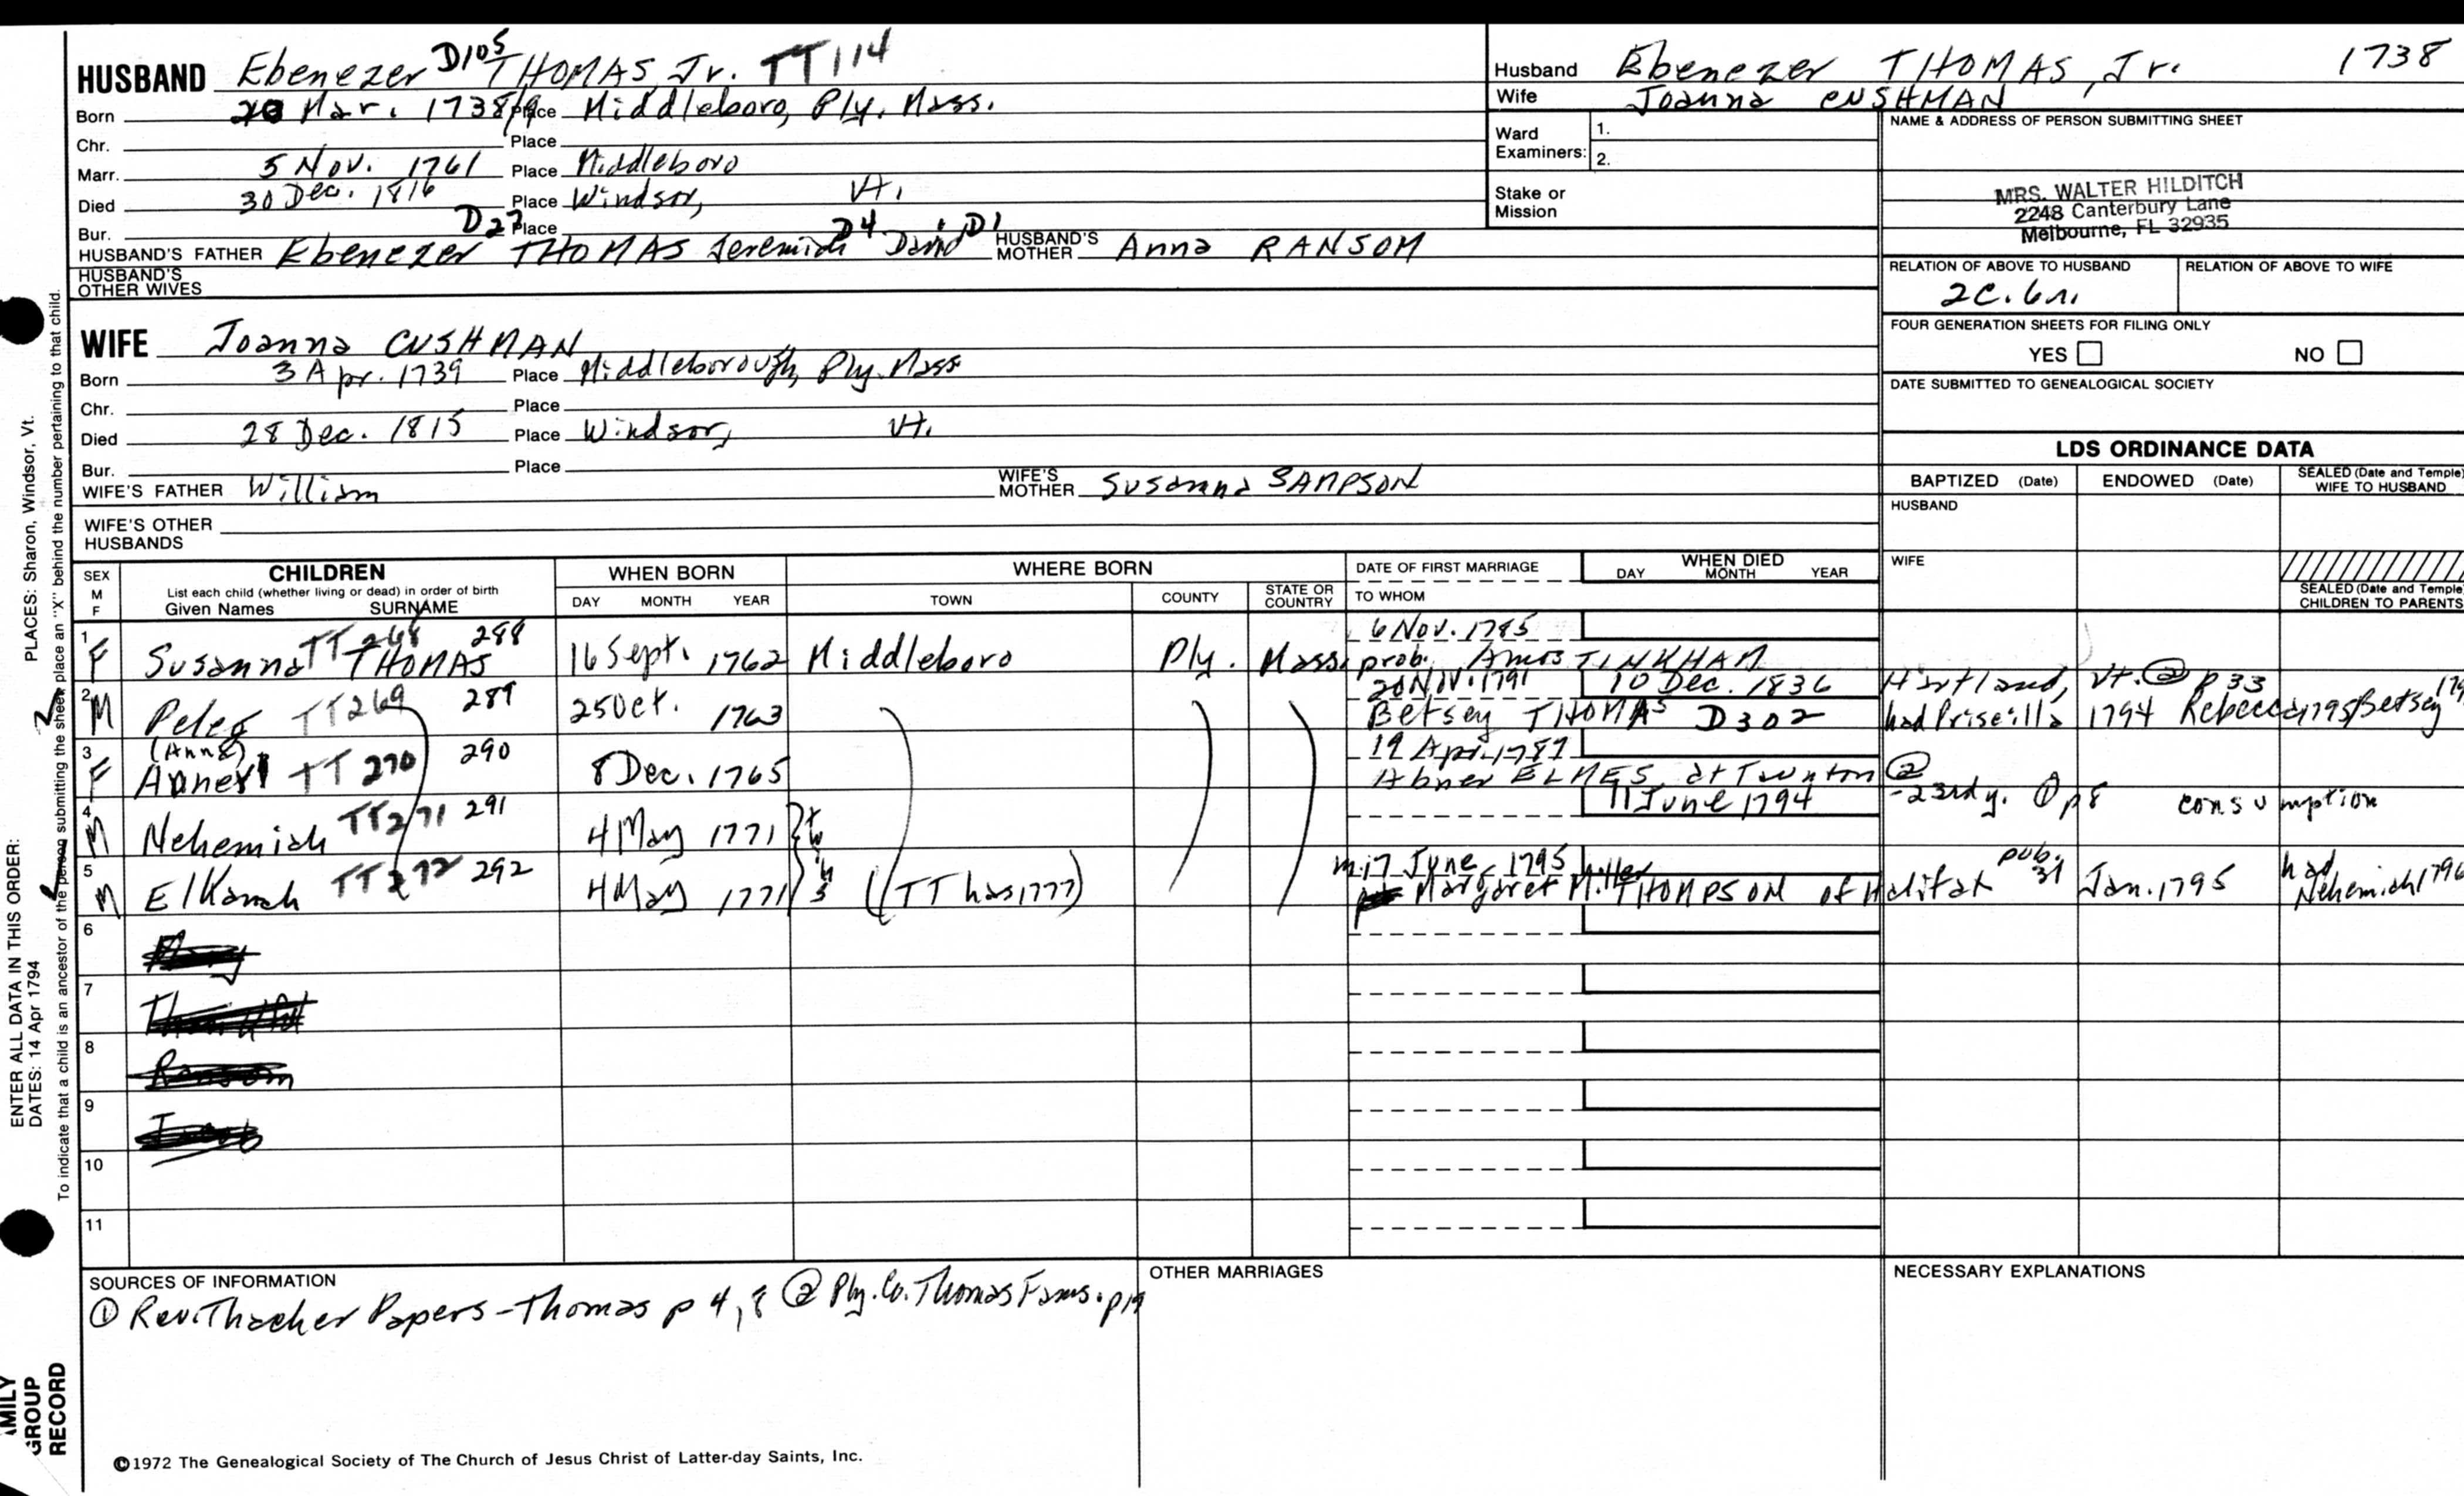 HUSBAND Ebenezer D105 THOMAS, Jr. TT114
Born Mar. 1738/9 Place Middleboro, Ply. Mass.
Chr. Place
Marr. 5 Nov. 1761 Place Middleboro
Died 30 Dec. 1816 Place Windsor, Vt.
Bur. Place
HUSBAND'S FATHER Ebenezer D27 THOMAS Jeremiah D4 David D1 HUSBAND'S MOTHER Anna RANSOM
HUSBAND'S OTHER WIVES
WIFE Joanna CUSHMAN
Born 3 Apr. 1739 Place Middleborough, Ply. Mass
Chr. Place
Died 28 Dec. 1815 Place Windsor, Vt.
Bur. Place
WIFE'S FATHER William WIFE'S MOTHER Susanna SAMPSON
WIFE'S OTHER HUSBANDS
Husband Ebenezer THOMAS, Jr. 1738
Wife Joanna CUSHMAN
Ward Examiners: 1.
2.
Stake or Mission
NAME & ADDRESS OF PERSON SUBMITTING SHEET
MRS. WALTER HILDITCH
2248 Canterbury Lane
Melbourne, FL 32935
RELATION OF ABOVE TO HUSBAND RELATION OF ABOVE TO WIFE
2C.6r.
FOUR GENERATION SHEETS FOR FILING ONLY
YES NO
DATE SUBMITTED TO GENEALOGICAL SOCIETY
LDS ORDINANCE DATA
BAPTIZED (Date) ENDOWED (Date) SEALED (Date and Temple) WIFE TO HUSBAND
HUSBAND
WIFE
SEALED (Date and Temple) CHILDREN TO PARENTS
SEX M F CHILDREN List each child (whether living or dead) in order of birth Given Names SURNAME
WHEN BORN DAY MONTH YEAR
WHERE BORN TOWN COUNTY STATE OR COUNTRY
DATE OF FIRST MARRIAGE TO WHOM
WHEN DIED DAY MONTH YEAR
1 F Susanna TT268 THOMAS 288 16 Sept. 1762 Middleboro Ply. Mass. 6 Nov. 1785
prob. Amos TINKHAM
2 M Peleg TT269 289 25 Oct. 1763 20 Nov. 1791 10 Dec. 1836 Hartland, Vt. ② p33
Betsey THOMAS D302 had Priscilla 1794 Rebecca 1795 Betsey
3 F (Anna) Abner TT270 290 8 Dec. 1765 19 Apr. 1787
Abner ELMES, at Taunton ②
4 M Nehemiah TT271 291 4 May 1771 twins 11 June 1794 -23rd y. ① p8 consumption
5 M Elkanah TT272 292 4 May 1771 (TT has 1777) m. 17 June 1795
Margaret Miller THOMPSON of Halifax pub. 31 Jan. 1795 had Nehemiah 1796
6
7
8 Ransom
9
10
11
SOURCES OF INFORMATION
① Rev. Thacher Papers - Thomas p 4, 8 ② Ply. Co. Thomas Fams. p19
OTHER MARRIAGES
NECESSARY EXPLANATIONS
©1972 The Genealogical Society of The Church of Jesus Christ of Latter-day Saints, Inc.
ENTER ALL DATA IN THIS ORDER:
DATES: 14 Apr 1794 PLACES: Sharon, Windsor, Vt.
To indicate that a child is an ancestor of the person submitting the sheet, place an "X" behind the number pertaining to that child.
GROUP
RECORD